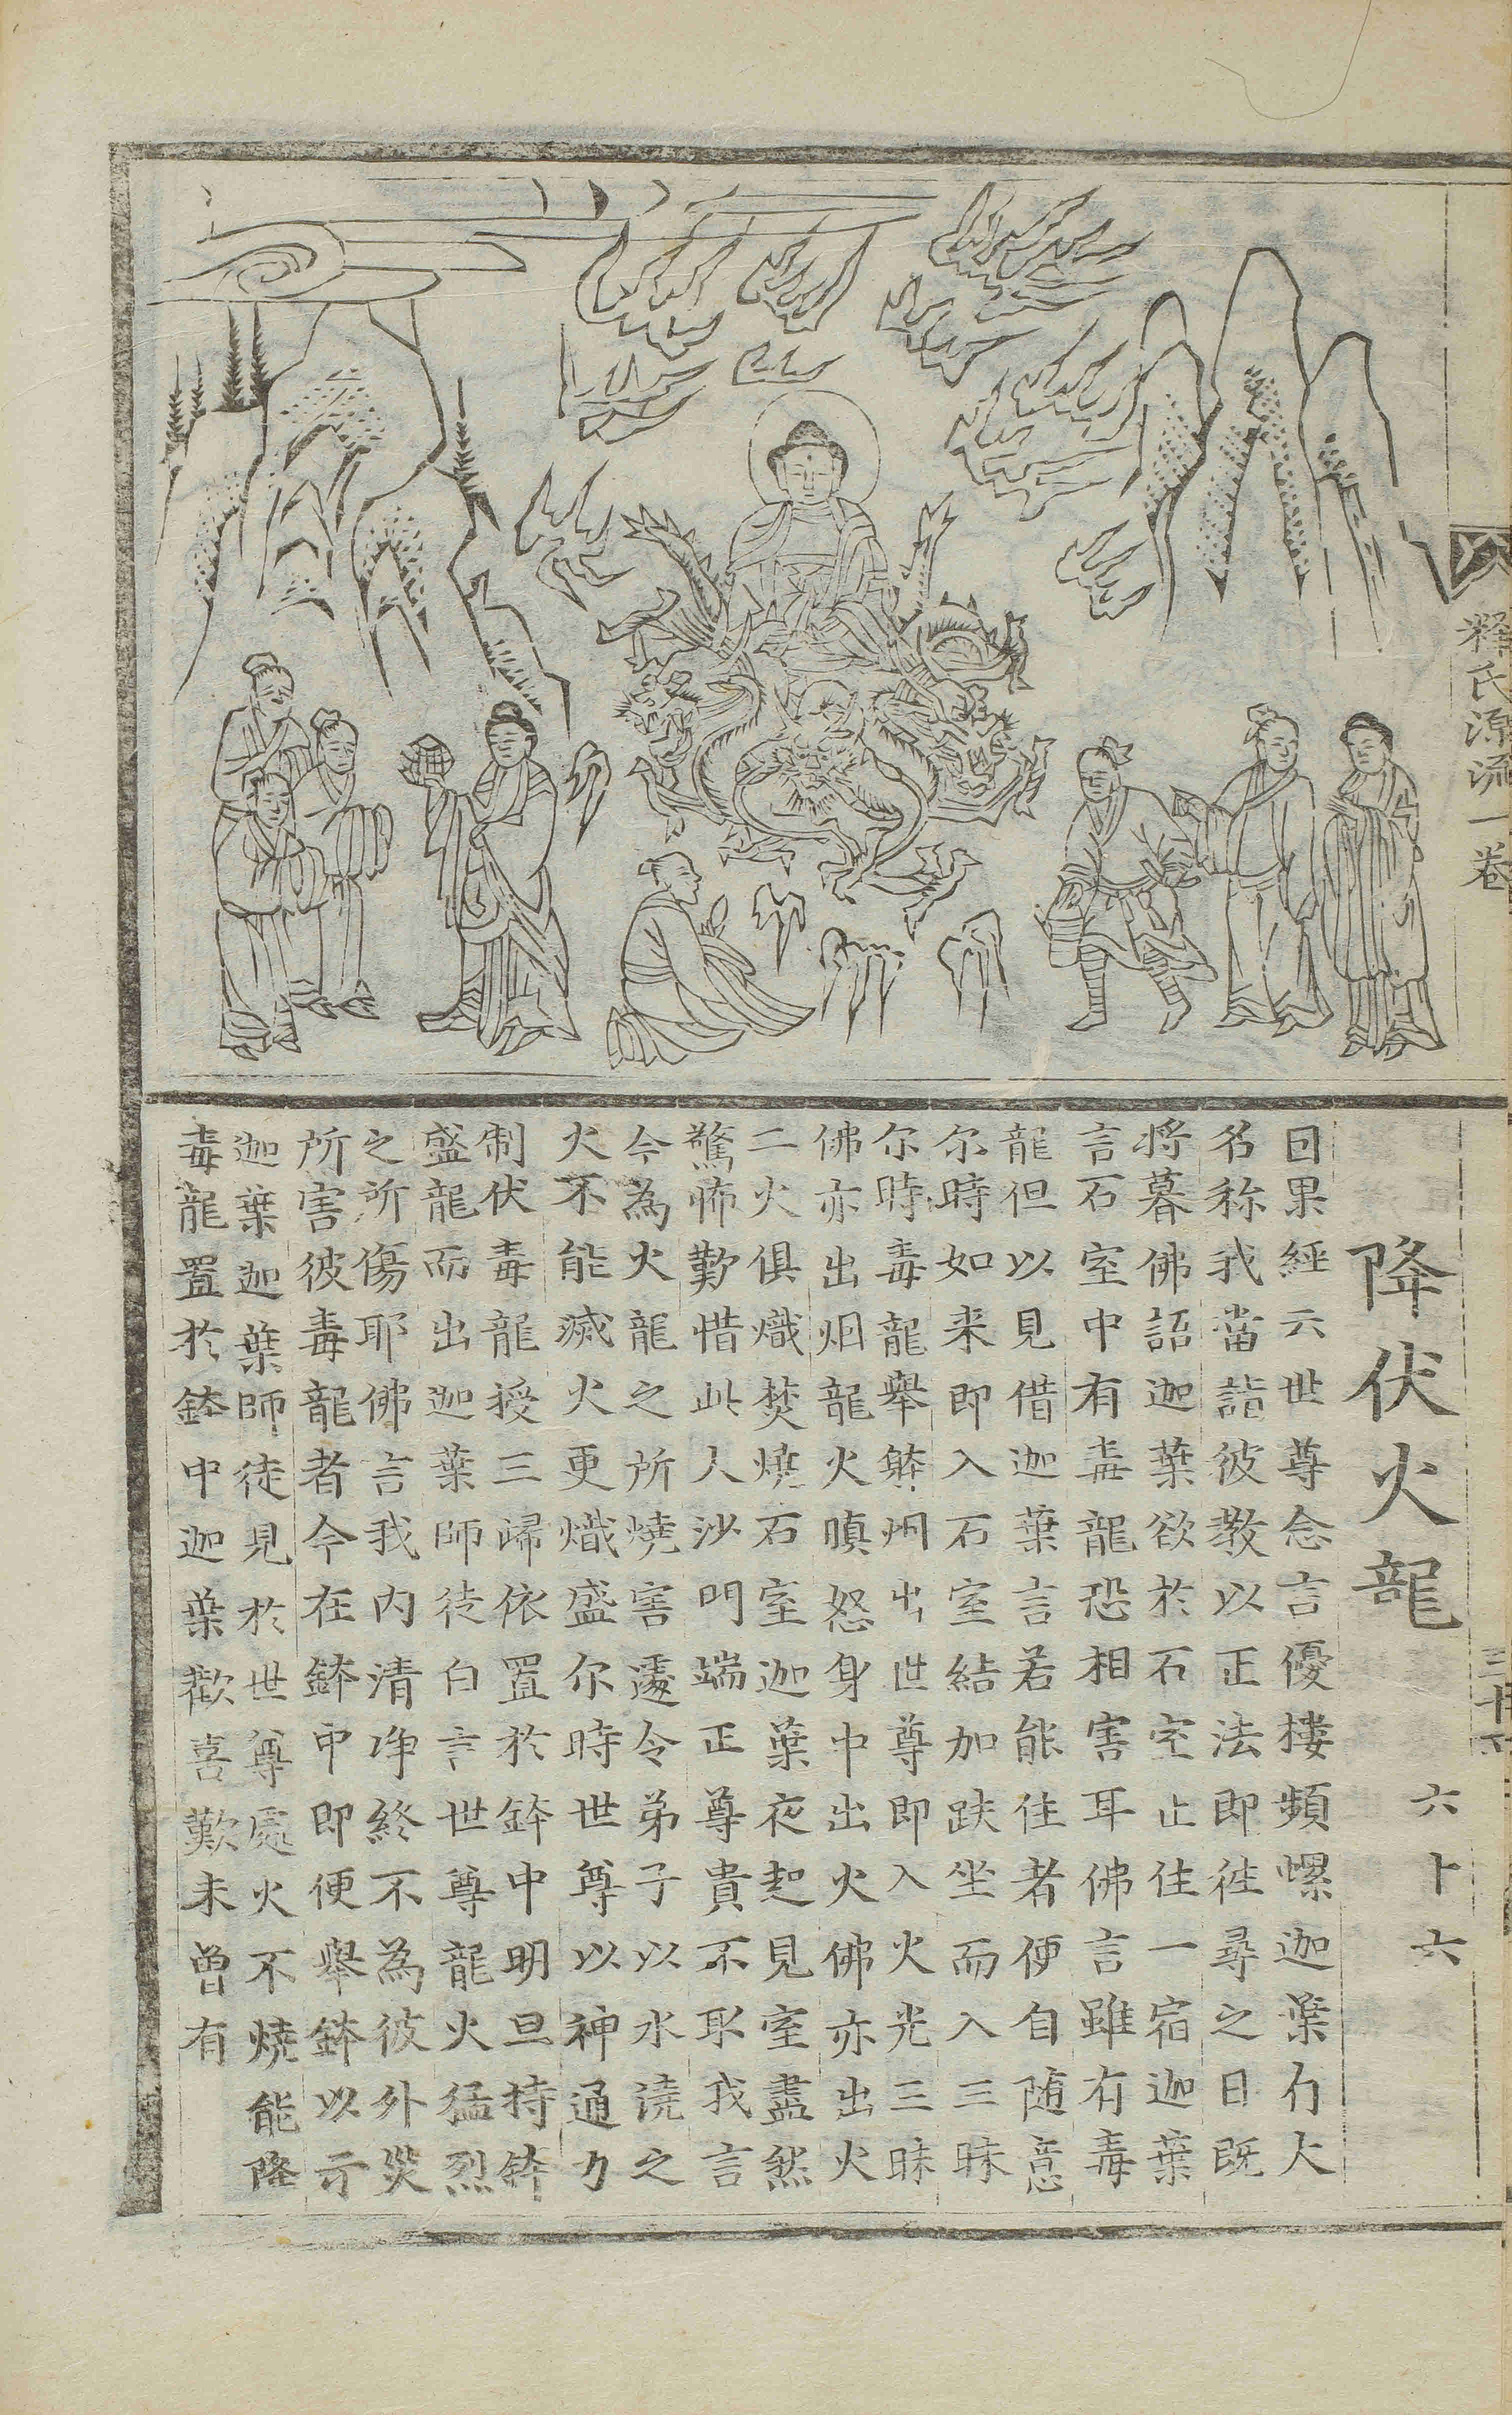 釋氏源流一卷
三十六
降伏火龍
六十六
因果經云世尊念言優樓頻螺迦葉有大
名称我當詣彼教以正法即往尋之日既
将暮佛語迦葉欲於石室止住一宿迦葉
言石室中有毒龍恐相害耳佛言雖有毒
龍但以見借迦葉言若能住者便自随意
尔時如来即入石室結加趺坐而入三昧
尔時毒龍舉體烟出世尊即入火光三昧
佛亦出烟龍火嗔怒身中出火佛亦出火
二火俱熾焚燒石室迦葉夜起見室盡然
驚怖歎惜此人沙門端正尊貴不取我言
今為火龍之所燒害遽令弟子以水澆之
火不能滅火更熾盛尔時世尊以神通力
制伏毒龍授三歸依置於鉢中明旦持鉢
盛龍而出迦葉師徒白言世尊龍火猛烈
之所傷耶佛言我内清净終不為彼外災
所害彼毒龍者今在鉢中即便舉鉢以示
迦葉迦葉師徒見於世尊處火不燒能降
毒龍置於鉢中迦葉歡喜歎未曾有